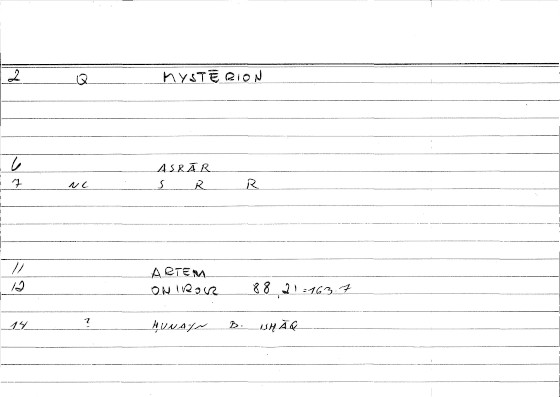 2 Q MYSTĒRION
6 ASRĀR
7 NC S R R
11 ARTEM
12 ONIROCR 88,21=163,7
14 ? ḤUNAYN B. ISḤĀQ